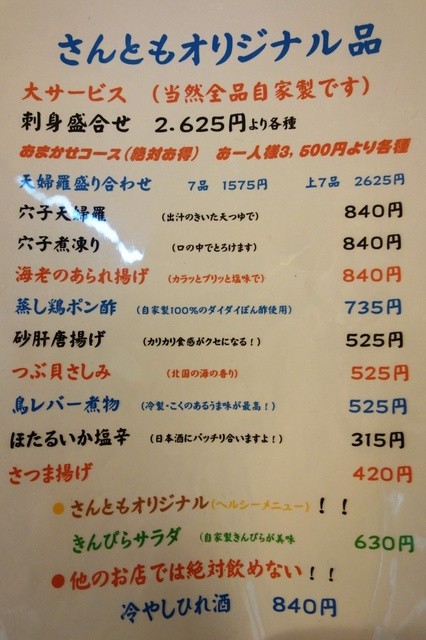 さんともオリジナル品
大サービス （当然全品自家製です）
刺身盛合せ 2.625円より各種
おまかせコース（絶対お得） お一人様3,500円より各種
天婦羅盛り合わせ 7品 1575円 上7品 2625円
穴子天婦羅 （出汁のきいた天つゆで） 840円
穴子煮凍り （口の中でとろけます） 840円
海老のあられ揚げ （カラッとプリッと塩味で） 840円
蒸し鶏ポン酢 （自家製100%のダイダイぽん酢使用） 735円
砂肝唐揚げ （カリカリ食感がクセになる！） 525円
つぶ貝さしみ （北国の海の香り） 525円
鳥レバー煮物 （冷製・こくのあるうま味が最高！） 525円
ほたるいか塩辛 （日本酒にバッチリ合いますよ！） 315円
さつま揚げ 420円
●さんともオリジナル（ヘルシーメニュー）！！
きんぴらサラダ （自家製きんぴらが美味 630円
●他のお店では絶対飲めない！！
冷やしひれ酒 840円